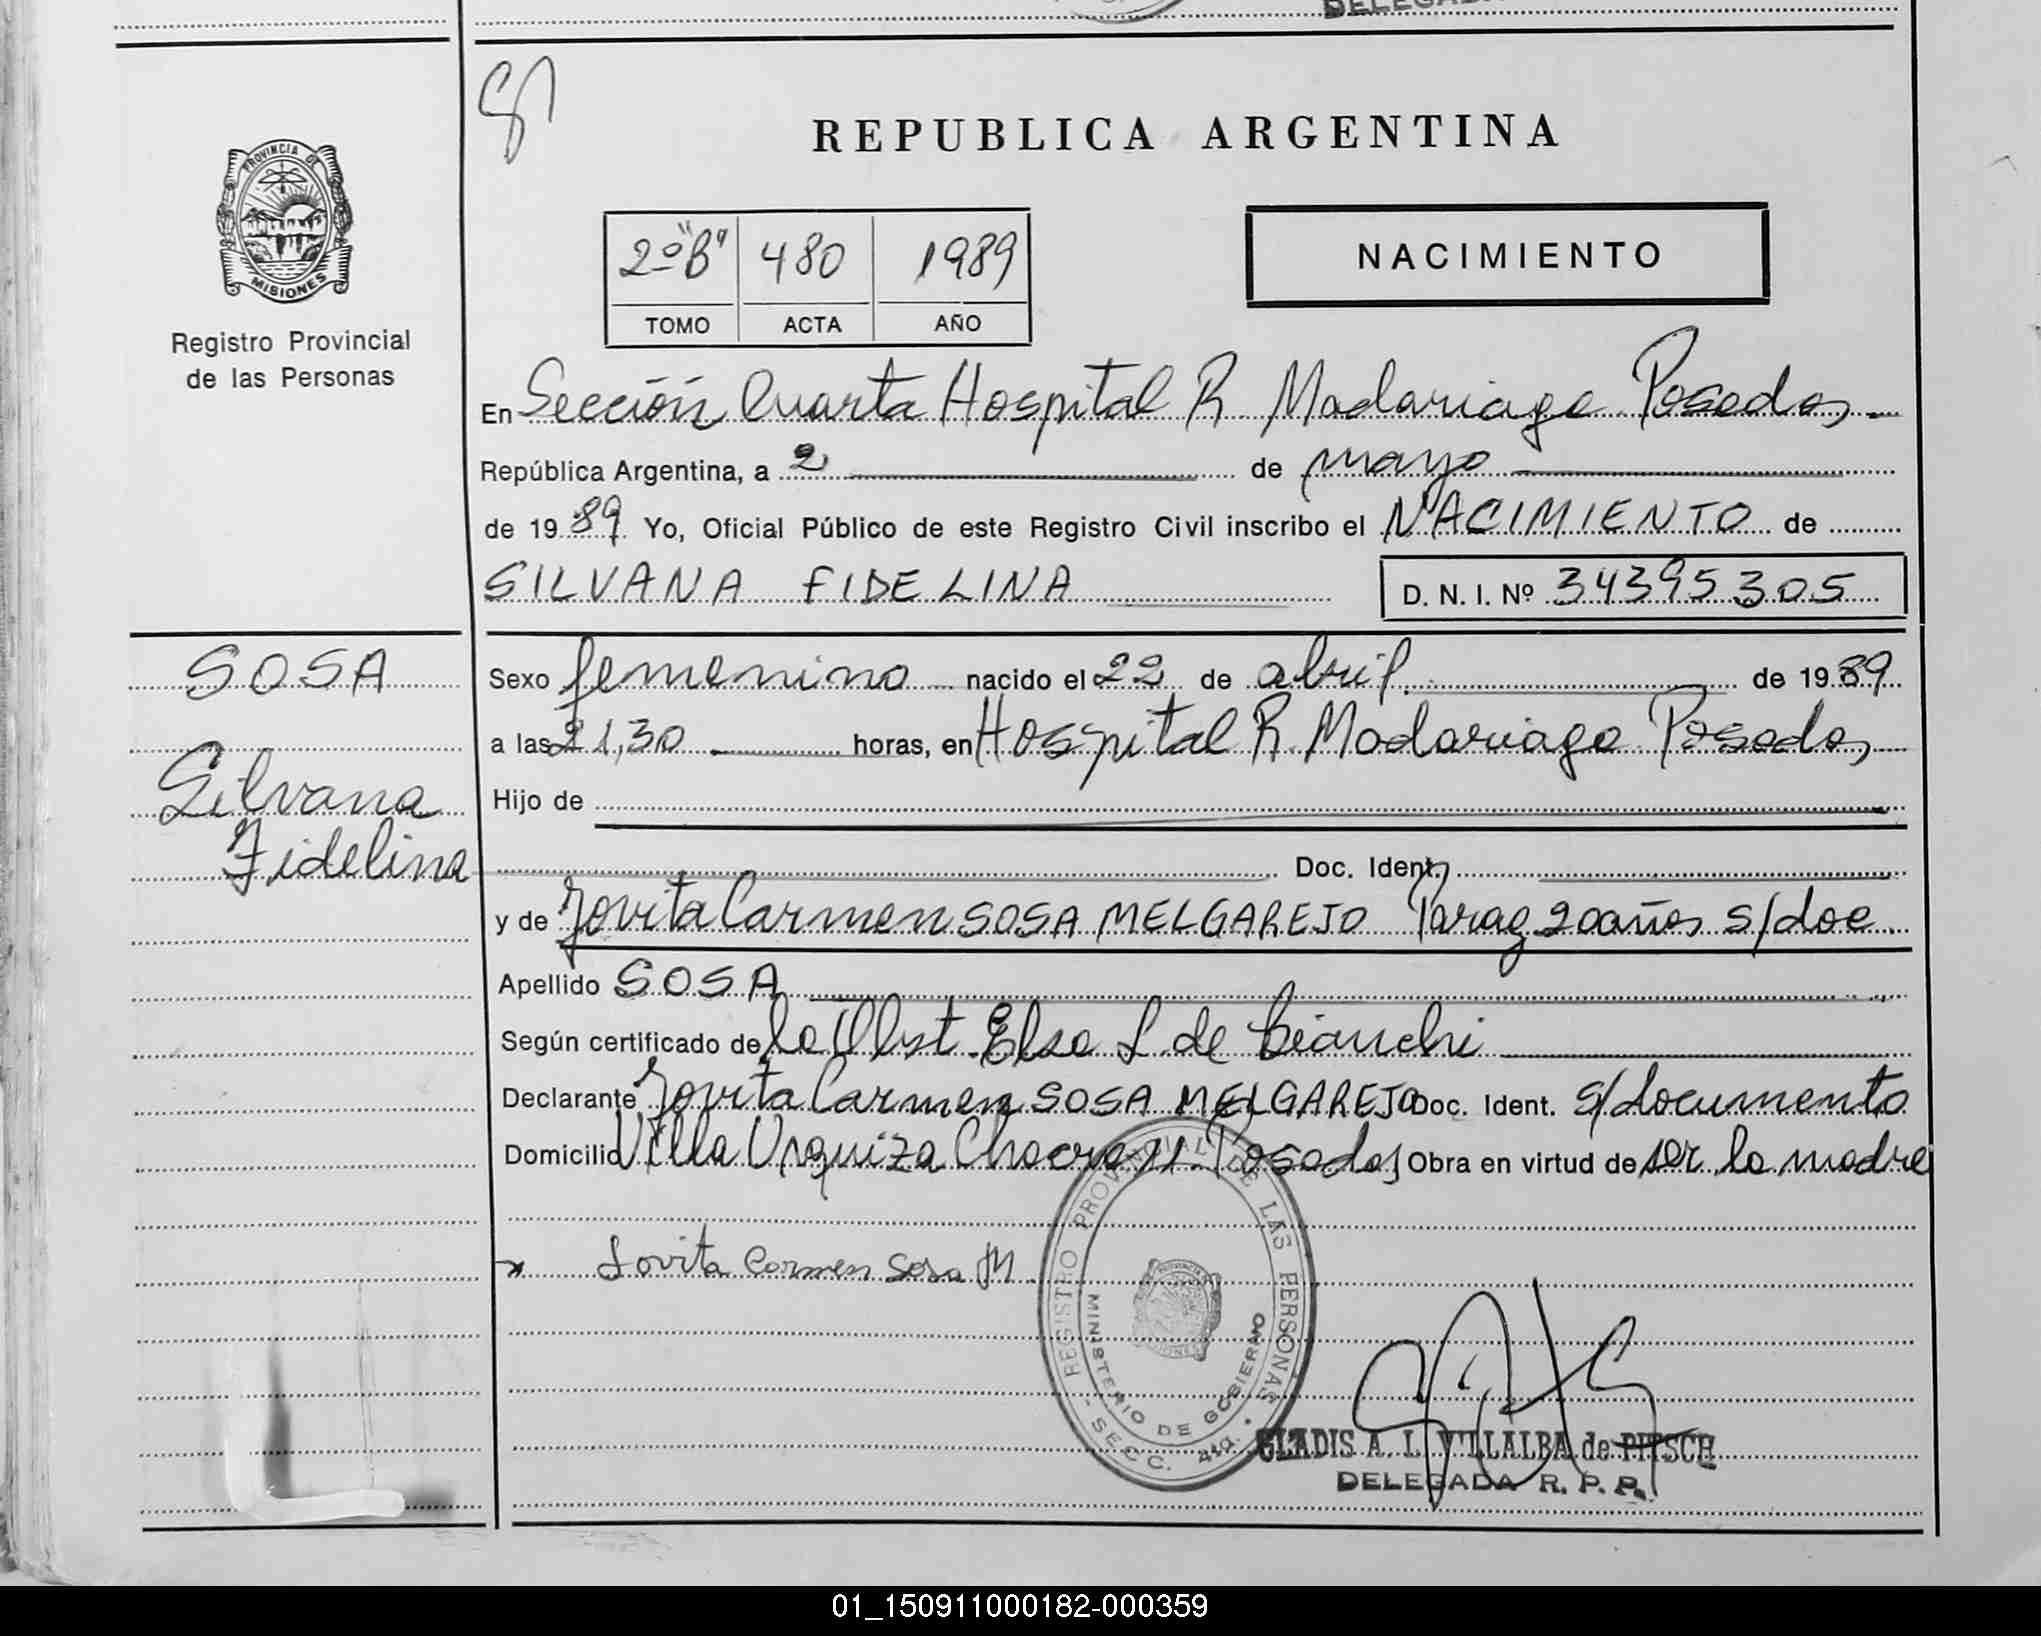 DELEGADA
REPUBLICA ARGENTINA
PROVINCIA DE
MISIONES
Registro Provincial
de las Personas
2º "B" 480 1989
TOMO ACTA AÑO
NACIMIENTO
En Sección Cuarta Hospital R Madariaga Posadas
República Argentina, a 2 de mayo
de 1989 Yo, Oficial Público de este Registro Civil inscribo el NACIMIENTO de
SILVANA FIDELINA D. N. I. Nº 34395305
SOSA
Silvana
Fidelina
Sexo femenino nacido el 22 de abril de 1989
a las 21,30 horas, en Hospital R. Madariaga Posadas
Hijo de
Doc. Ident.
y de Jovita Carmen SOSA MELGAREJO Parag 20 años s/doc
Apellido SOSA
Según certificado de la Obst. Elsa L de Bianchi
Declarante Jovita Carmen SOSA MELGAREJO Doc. Ident. s/documento
Domicilio Villa Urquiza Chacra Posadas Obra en virtud de ser la madre
Jovita Carmen Sosa M
REGISTRO PROVINCIAL DE LAS PERSONAS
MINISTERIO DE GOBIERNO
- SECC. 4ta. -
GLADIS A. I. VILLALBA de PITSCH
DELEGADA R. P. P.
01_150911000182-000359